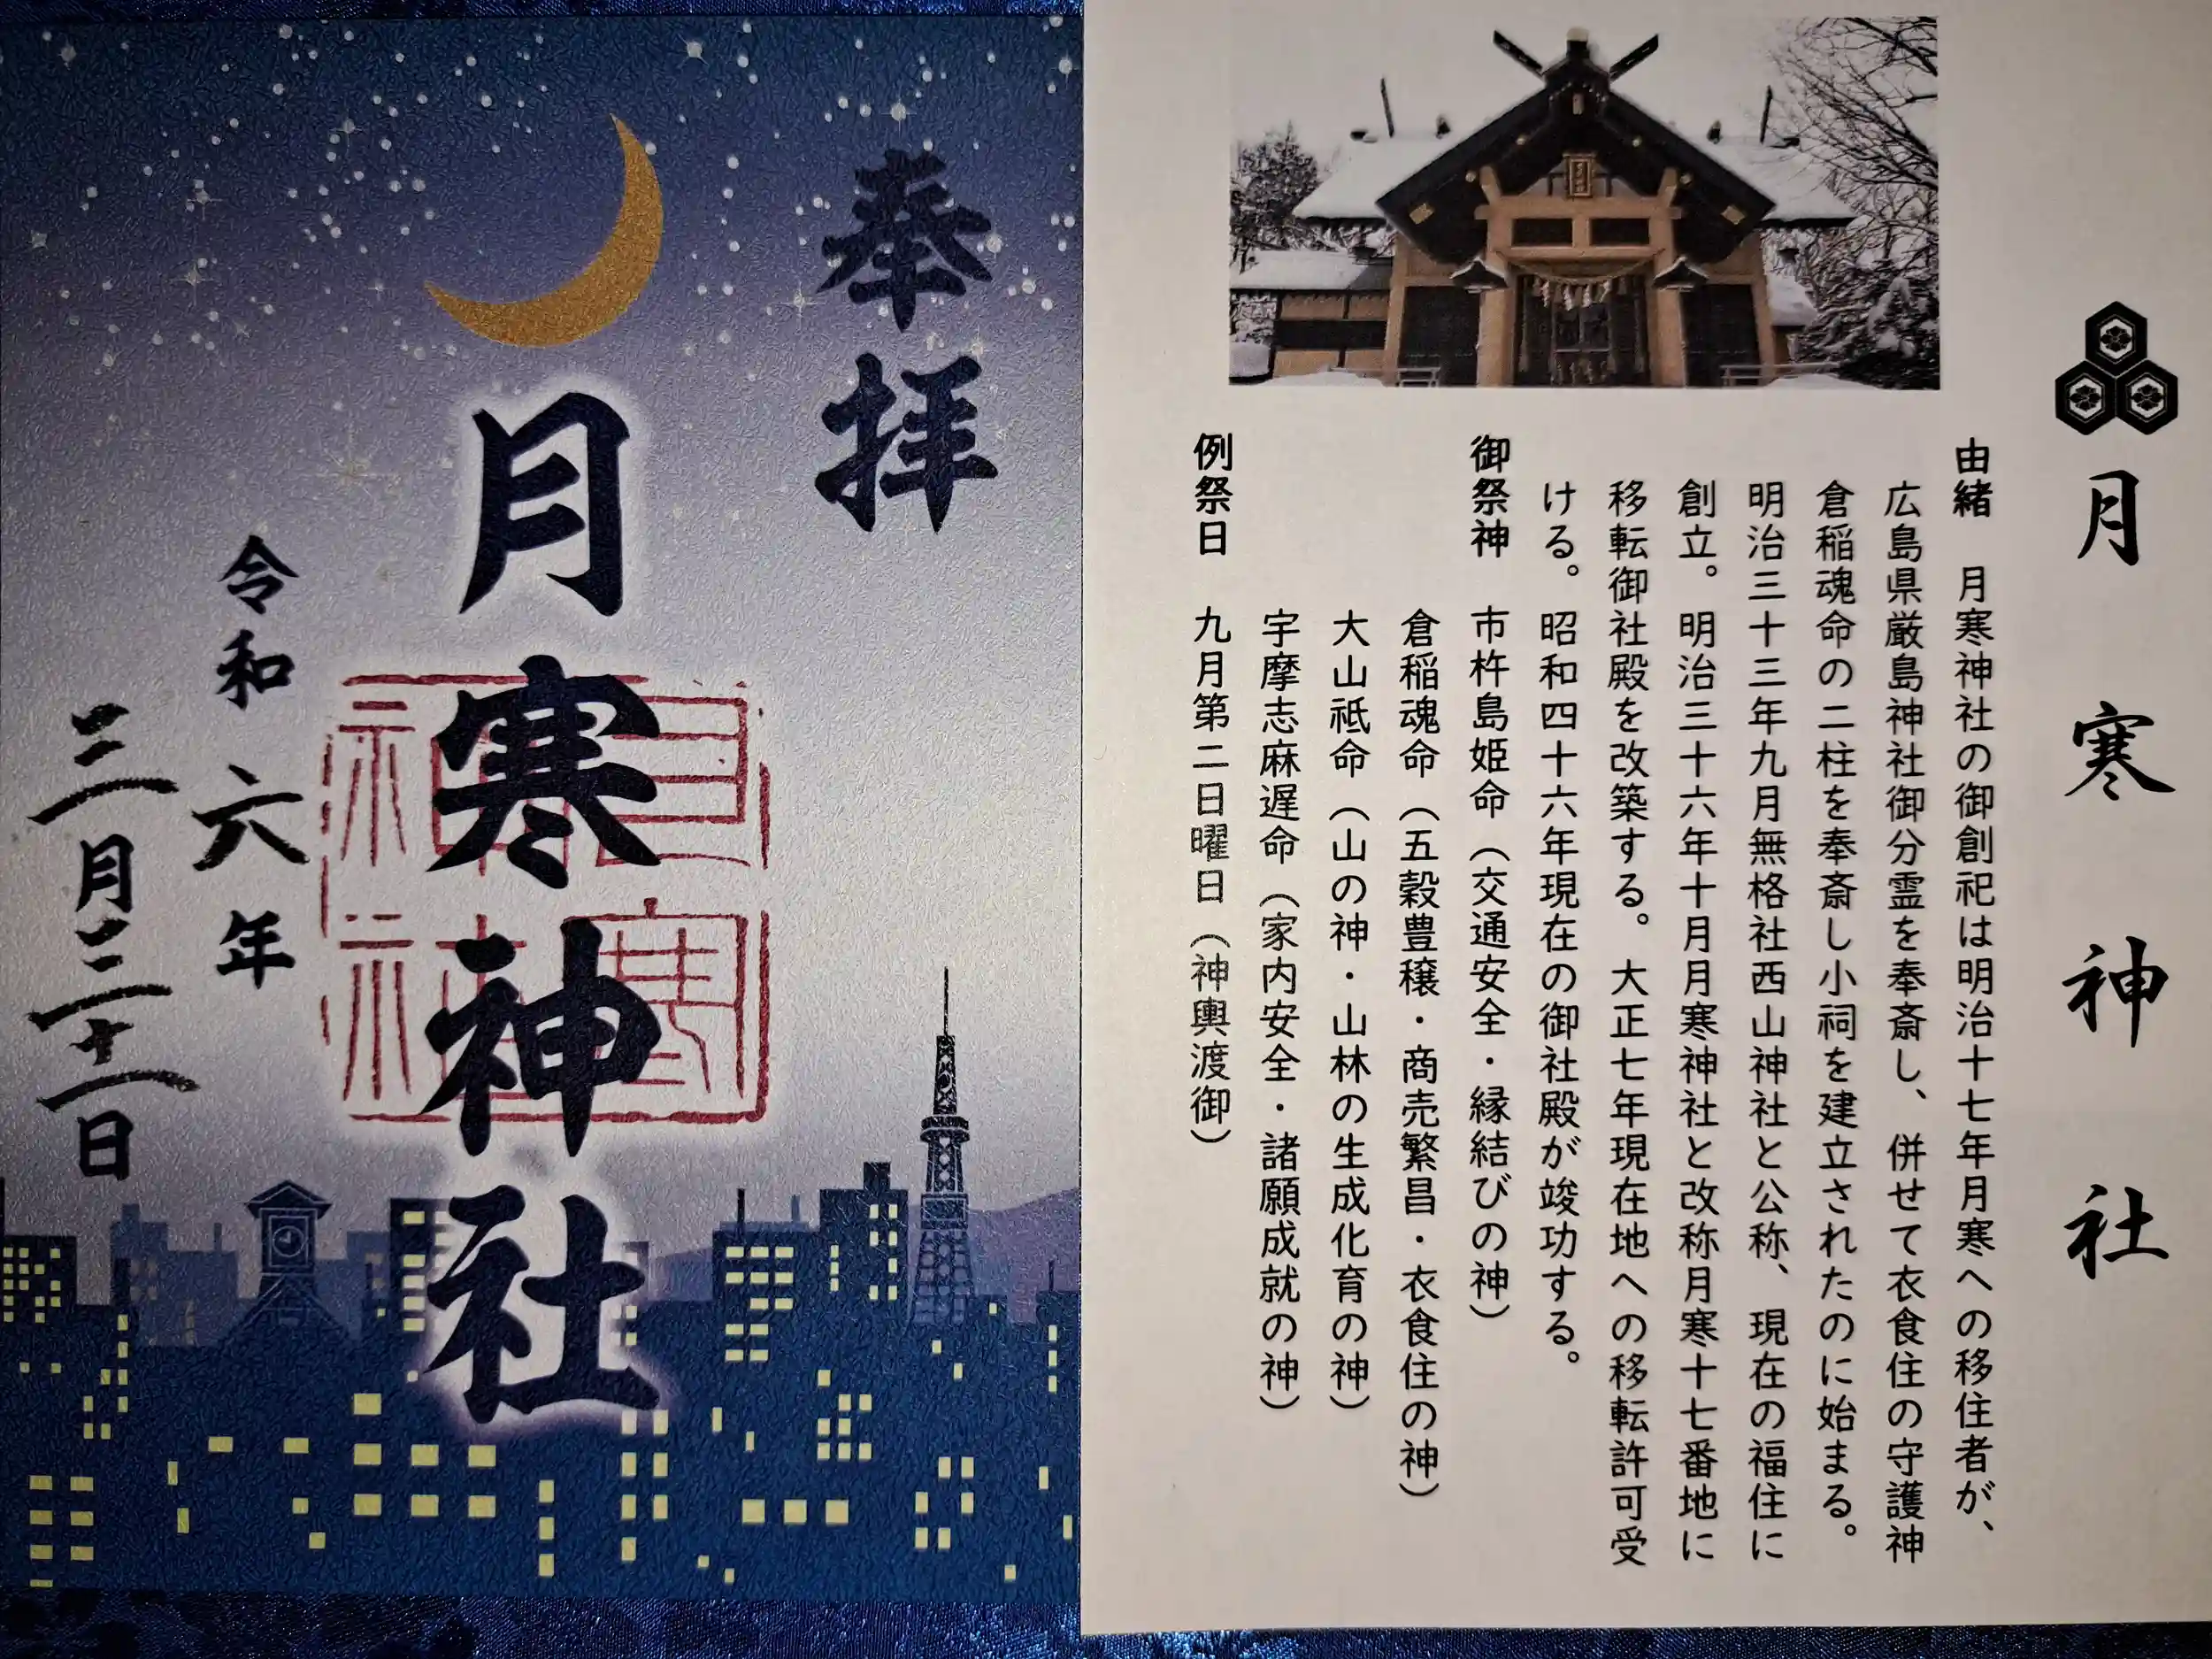 月寒神社
由緒　月寒神社の御創祀は明治十七年月寒への移住者が、
広島県厳島神社御分霊を奉斎し、併せて衣食住の守護神
倉稲魂命の二柱を奉斎し小祠を建立されたのに始まる。
明治三十三年九月無格社西山神社と公称、現在の福住に
創立。明治三十六年十月月寒神社と改称月寒十七番地に
移転御社殿を改築する。大正七年現在地への移転許可受
ける。昭和四十六年現在の御社殿が竣功する。
御祭神　市杵島姫命（交通安全・縁結びの神）
倉稲魂命（五穀豊穣・商売繁昌・衣食住の神）
大山祗命（山の神・山林の生成化育の神）
宇摩志麻遅命（家内安全・諸願成就の神）
例祭日　九月第二日曜日（神輿渡御）
奉拝
月寒神社
令和六年
三月三十一日